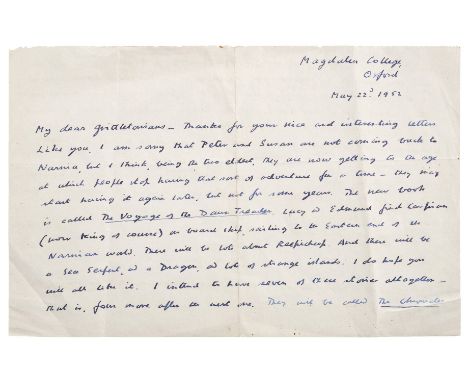 Magdalen College,
Oxford
May 22d 1952
My dear – Thanks for your nice and interesting letters
Like you, I am sorry that Peter and Susan are not coming back to
Narnia, but I think, being the two eldest, they are now getting to the age
at which people stop having that sort of adventure for a time – they may
start having it again later, but not for some years. The new book
is called The Voyage of the Dawn Treader. Lucy & Edmund find Caspian
(now King of course) on board ship, sailing to the Eastern end of the
Narnian world. There will be lots about Reepicheep. And there will be
a Sea Serpent, & a Dragon, & lots of strange islands. I do hope you
will all like it. I intend to have seven of these stories altogether –
that is, four more after the next one. They will be called The Chronicles